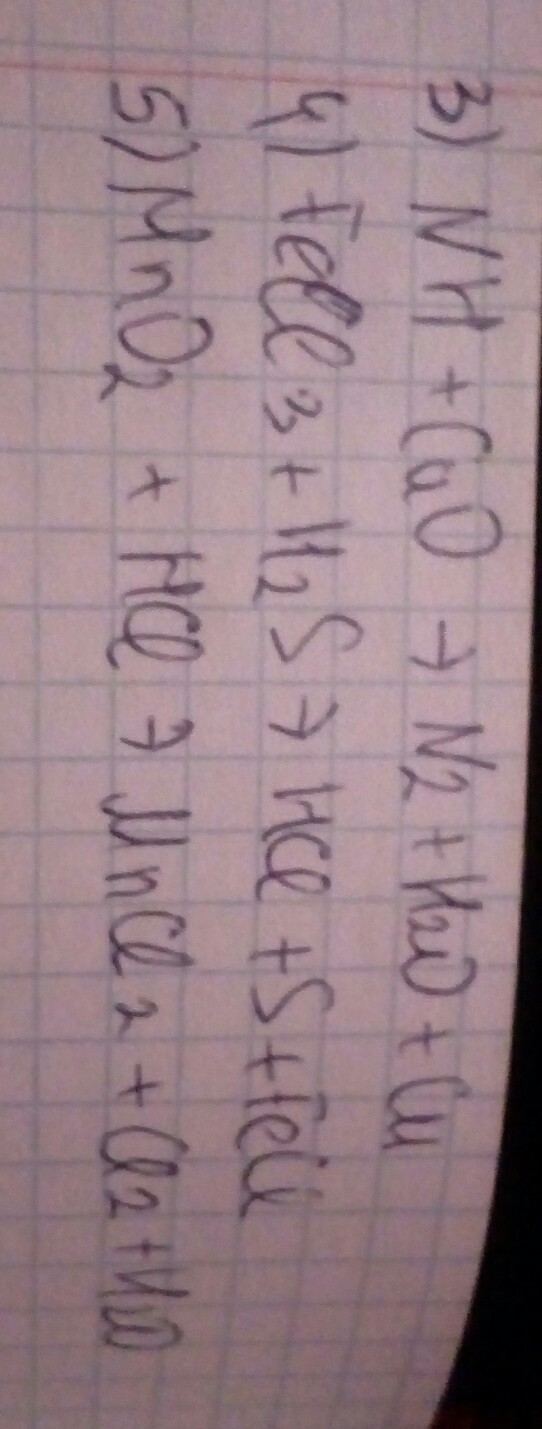 3) NH + CuO → N2 + H2O + Cu
4) FeCl3 + H2S → HCl + S + FeCl
5) MnO2 + HCl → MnCl2 + Cl2 + H2O